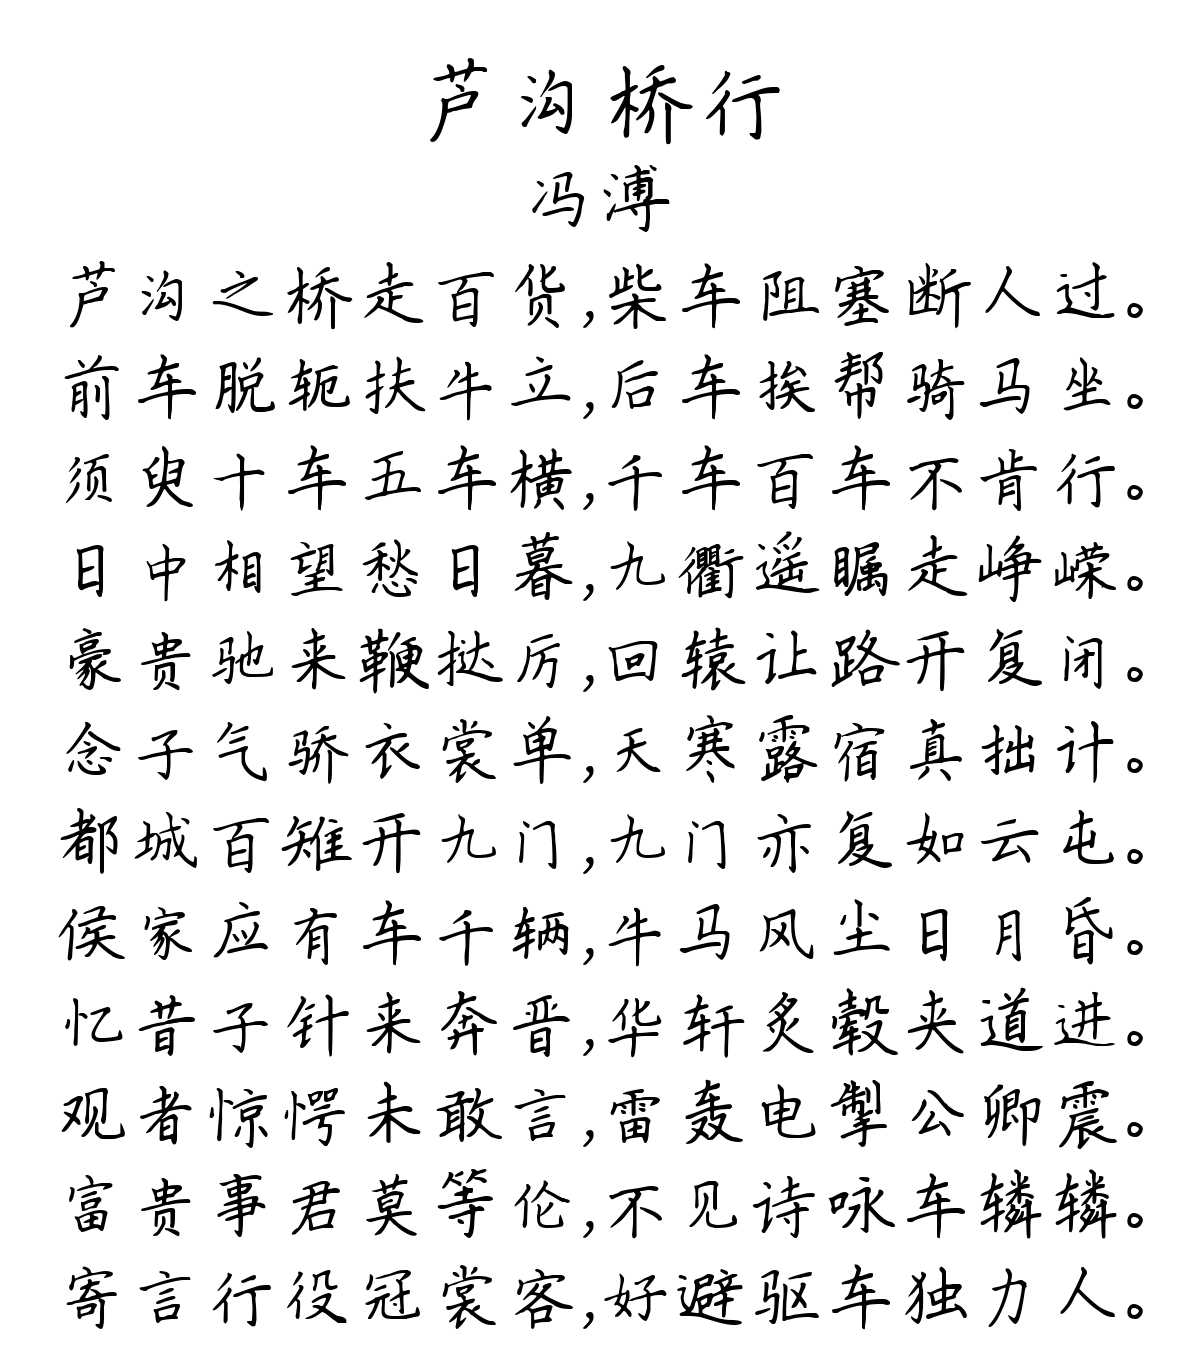 芦沟桥行
冯溥
芦沟之桥走百货,柴车阻塞断人过。
前车脱轭扶牛立,后车挨帮骑马坐。
须臾十车五车横,千车百车不肯行。
日中相望愁日暮,九衢遥瞩走峥嵘。
豪贵驰来鞭挞厉,回辕让路开复闭。
念子气骄衣裳单,天寒露宿真拙计。
都城百雉开九门,九门亦复如云屯。
侯家应有车千辆,牛马风尘日月昏。
忆昔子针来奔晋,华轩炙毂夹道进。
观者惊愕未敢言,雷轰电掣公卿震。
富贵事君莫等伦,不见诗咏车辚辚。
寄言行役冠裳客,好避驱车独力人。